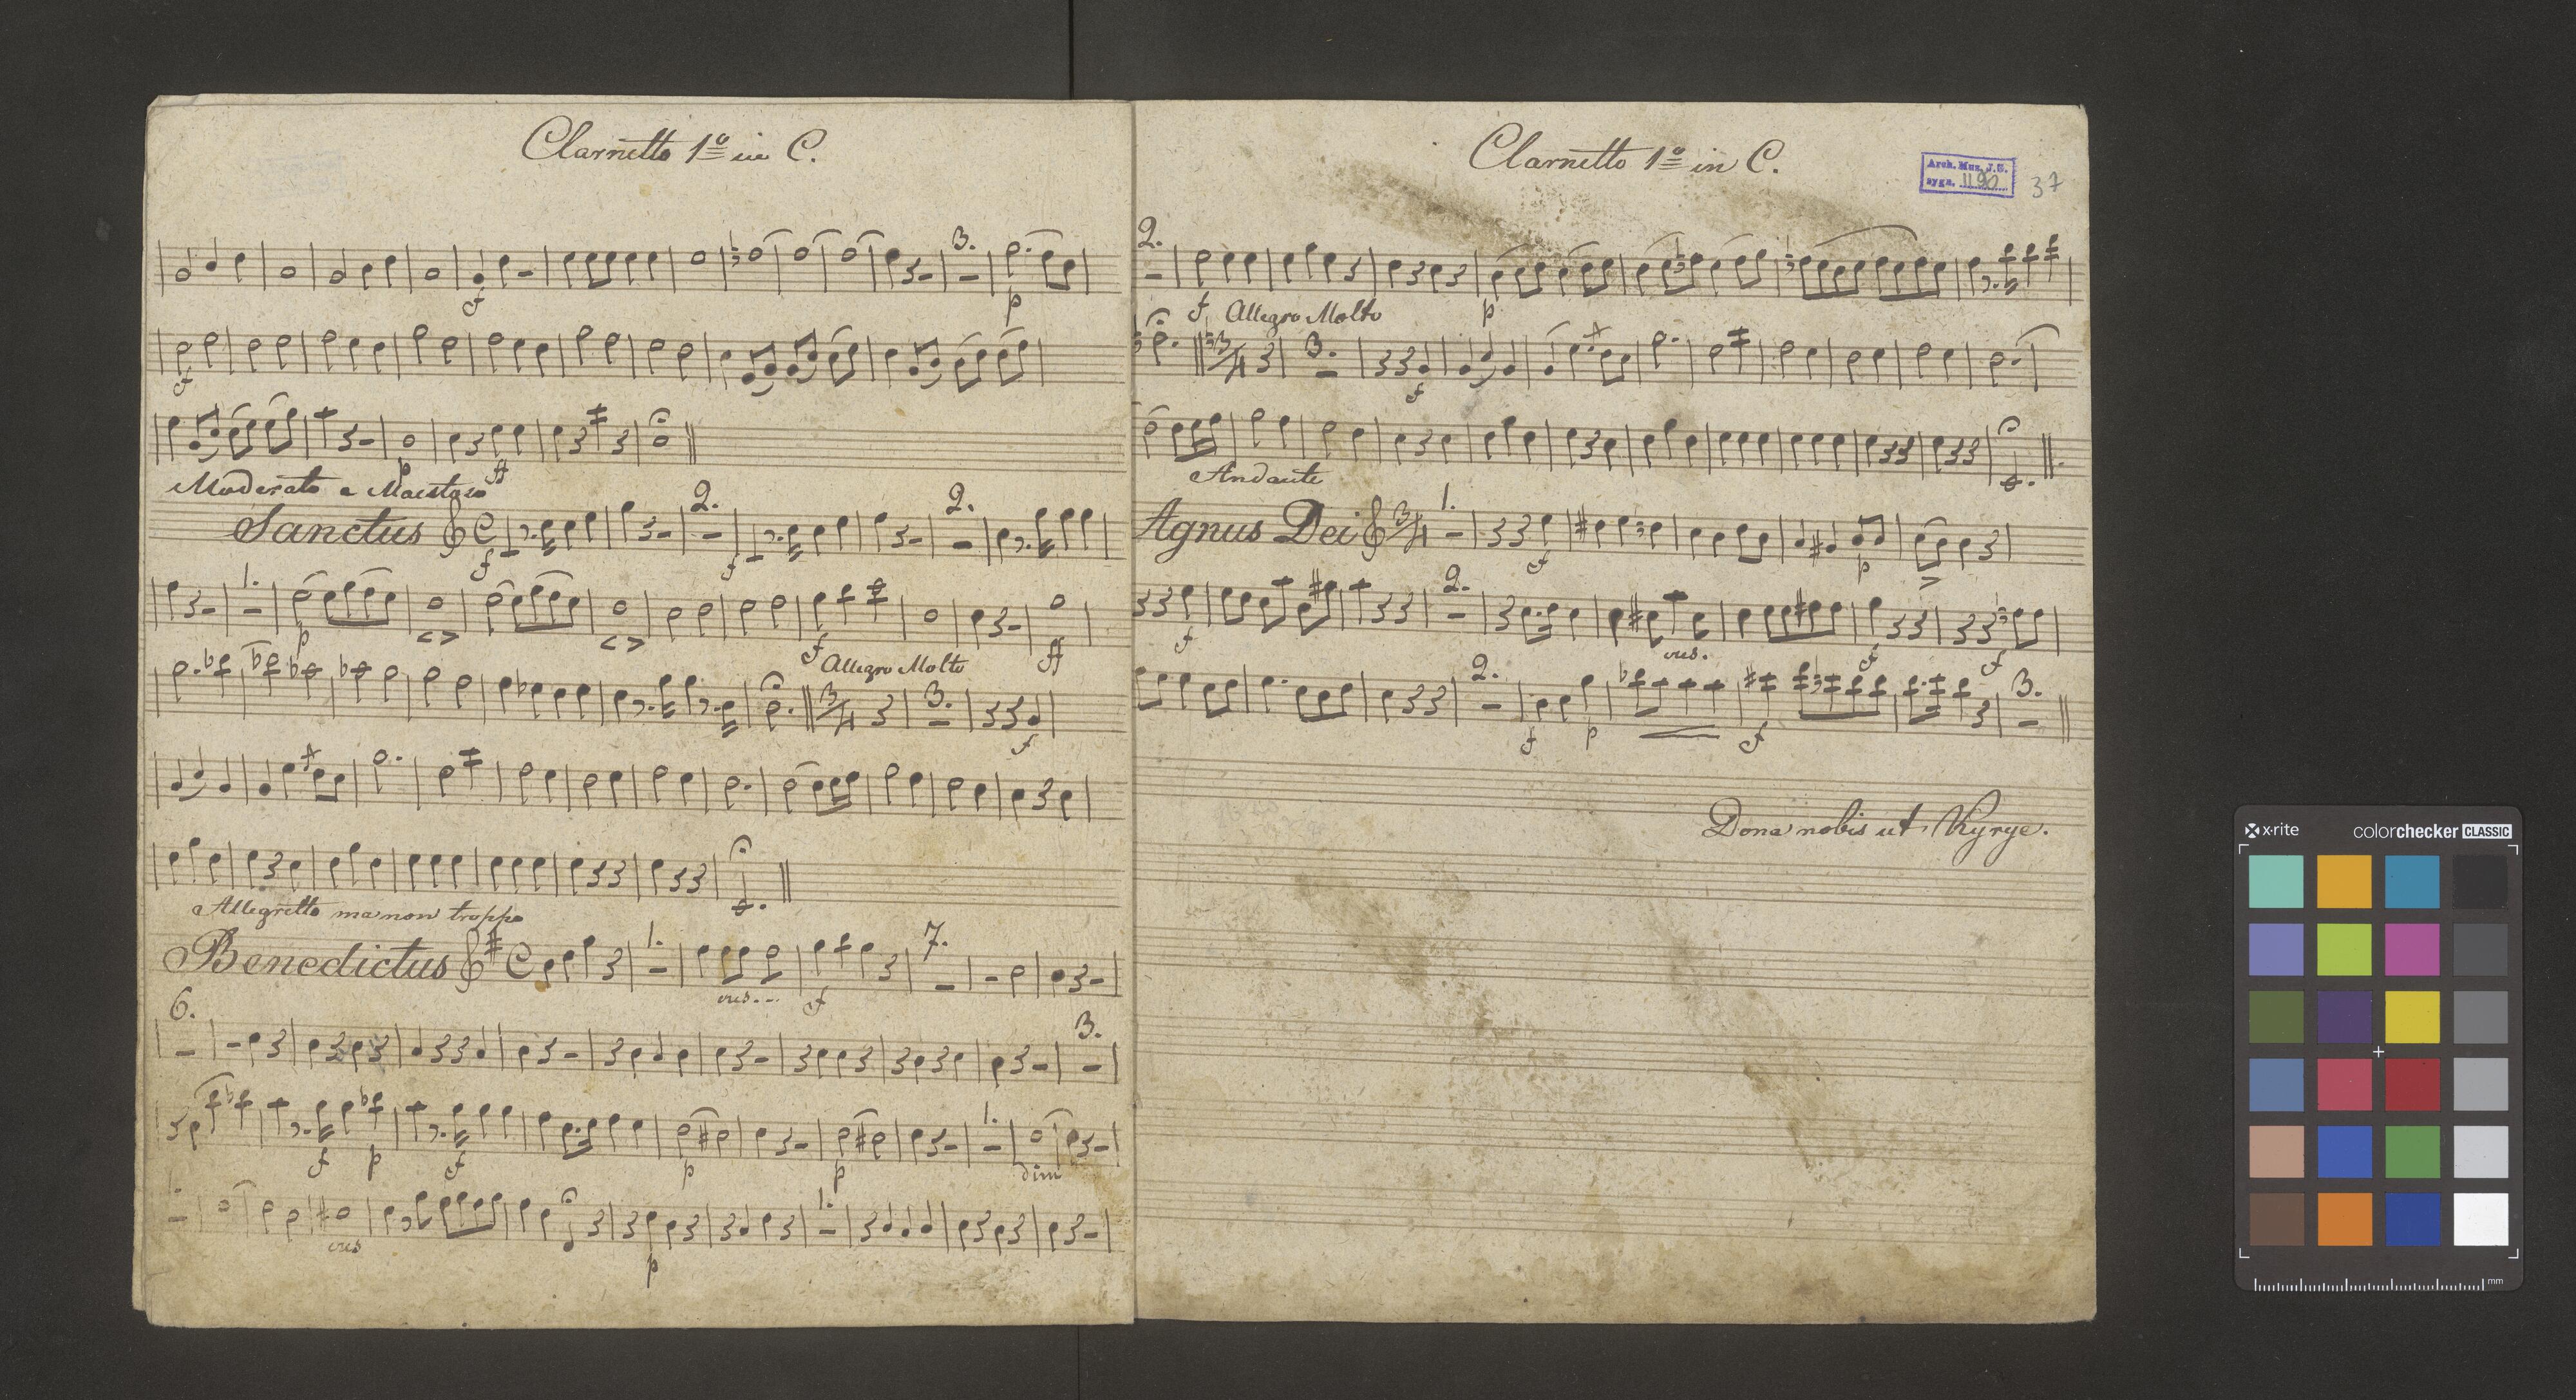 Clarnetto 1º in C.
3.
f
p
f
p
ff
Moderato e Maestoso
2.
2.
Sanctus
f
f
1.
p
< >
< >
f
ff
Allegro Molto
3/4
3.
f
Allegretto ma non troppo
Benedictus
1.
7.
f
6.
3.
f
p
f
p
p
1.
dim
1.
1.
p
Clarnetto 1º in C.
Arch. Muz. J. G.
sygn. 1190
37
2.
f
p
Allegro Molto
3/4
3.
f
Andante
Agnus Dei
3/4
1.
f
p
2.
f
f
f
2.
3.
f
p
f
Dona nobis ut Kyrye.
x·rite
colorchecker CLASSIC
mm